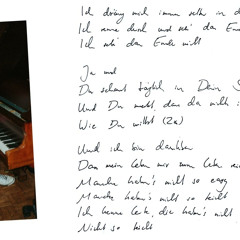 Ich dräng mich immer selber in d
Ich renne durch und seh' das En
Ich seh' das Ende nicht
Ja und
Du schaust täglich in Dein S
Und Du merkst, dass da nicht i
Wie Du willst (2x)
Und ich bin dankbar
Dass mein Leben mir zum Leben
Manche haben's nicht so easy
Manche haben's nicht so leicht
Ich kenne Leute, die haben's nicht
Nicht so leicht